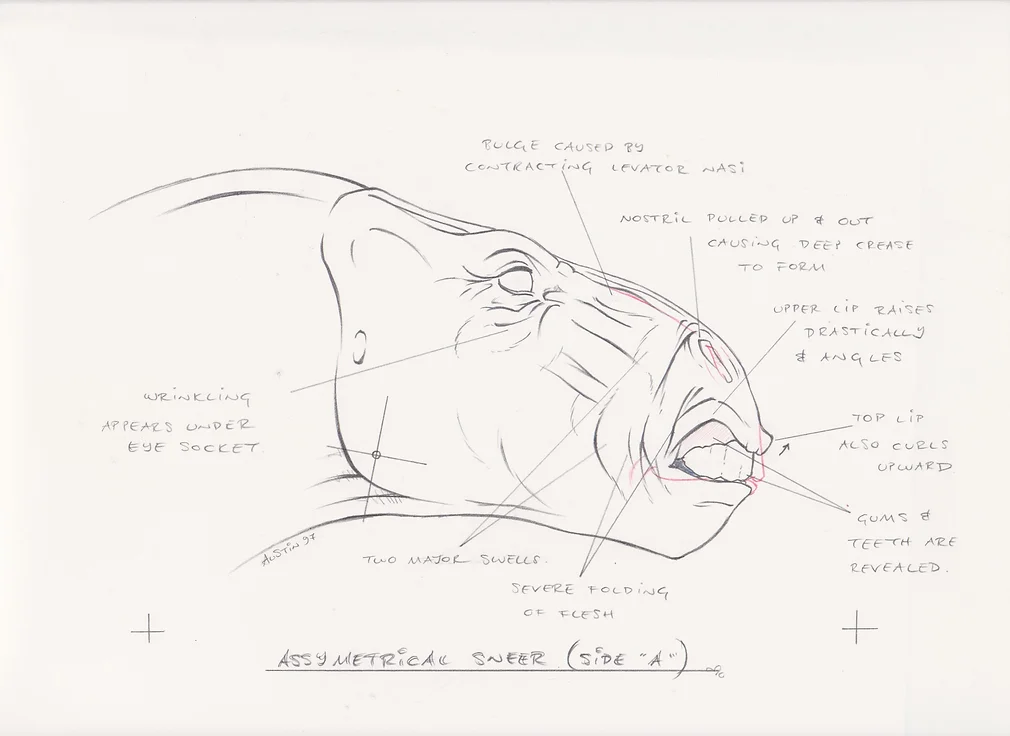 BULGE CAUSED BY
CONTRACTING LEVATOR NASI
NOSTRIL PULLED UP & OUT
CAUSING DEEP CREASE
TO FORM
UPPER LIP RAISES
DRASTICALLY
& ANGLES
WRINKLING
APPEARS UNDER
EYE SOCKET.
TOP LIP
ALSO CURLS
UPWARD
GUMS &
TEETH ARE
REVEALED.
AUSTIN 97
TWO MAJOR SWELLS.
SEVERE FOLDING
OF FLESH
ASSYMETRICAL SNEER (SIDE "A")